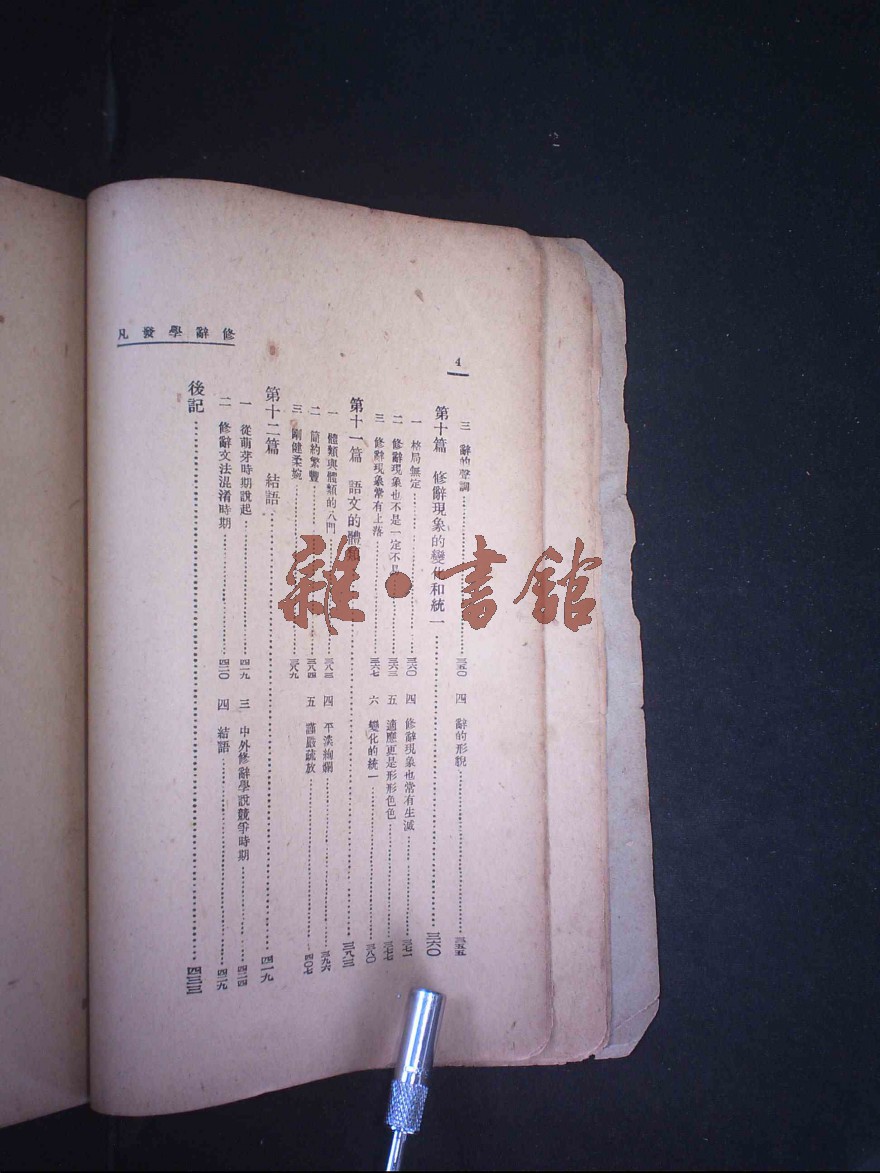 修辭學發凡
4
三 辭的聲調 三五〇 四 辭的形貌 三五五
第十篇 修辭現象的變化和統一 三六〇
一 格局無定 三六〇 四 修辭現象也常有生滅 三七一
二 修辭現象也不是一定不 三六三 五 適應更是形形色色 三七七
三 修辭現象常有上落 三六七 六 變化的統一 三八〇
第十一篇 語文的體類 三八三
一 體類與體類的八門 三八三 四 平淡絢爛 三九六
二 簡約繁豐 三八四 五 謹嚴疏放 四〇七
三 剛健柔婉 三八九
第十二篇 結語 四一九
一 從萌芽時期說起 四一九 三 中外修辭學說競爭時期 四二四
二 修辭文法混淆時期 四二〇 四 結語 四二九
後記 四三三
雜·書館